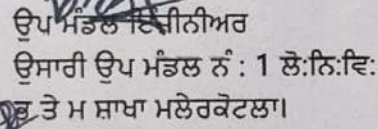 ਉਪ ਮੰਡਲ ਇੰਜੀਨੀਅਰ
ਉਸਾਰੀ ਉਪ ਮੰਡਲ ਨੰ : 1 ਲੋ:ਨਿ:ਵਿ:
ਭ ਤੇ ਮ ਸ਼ਾਖਾ ਮਲੇਰਕੋਟਲਾ।